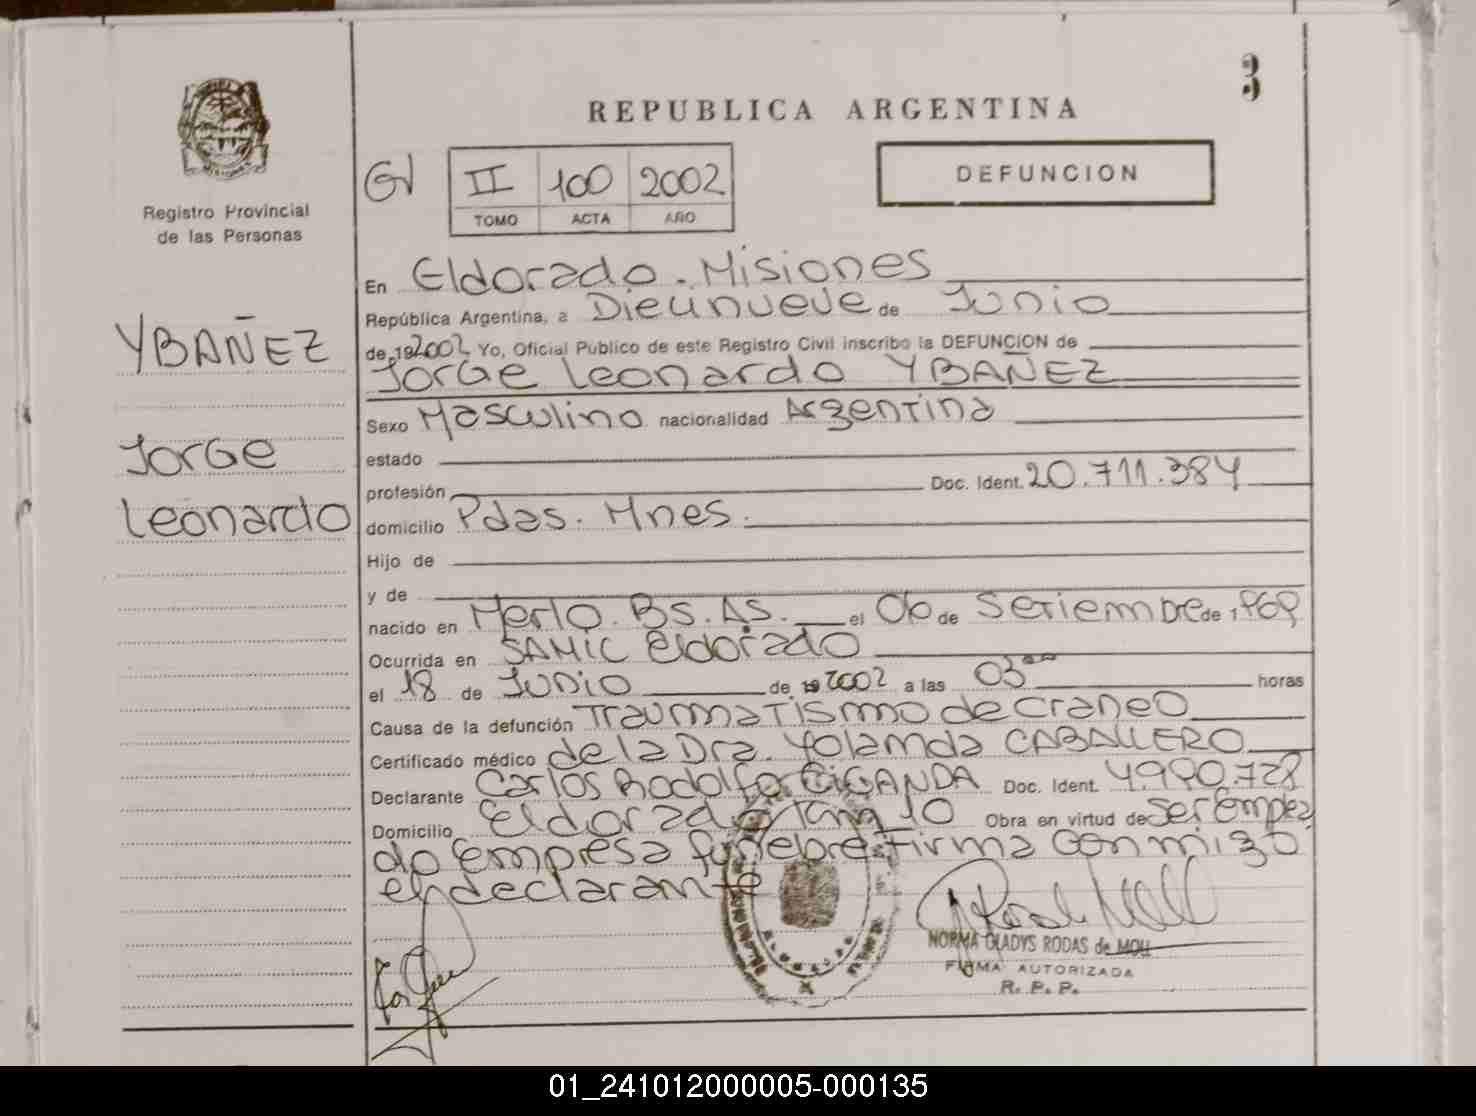 3
REPUBLICA ARGENTINA
Registro Provincial
de las Personas
GV II 100 2002
TOMO ACTA AÑO
DEFUNCION
En Eldorado. Misiones
República Argentina, a Diecinueve de Junio
de 192002 Yo, Oficial Publico de este Registro Civil inscribo la DEFUNCION de
Jorge Leonardo YBAÑEZ
YBAÑEZ
Jorge
Leonardo
Sexo Masculino nacionalidad Argentina
estado
profesión Doc. Ident. 20.711.384
domicilio Pdas. Mnes.
Hijo de
y de
nacido en Merlo. Bs. As. el 06 de Setiembre de 1969
Ocurrida en SAMIC Eldorado
el 18 de Junio de 192002 a las 03 horas
Causa de la defunción Traumatismo de craneo
Certificado médico de la Dra. Yolanda CABALLERO
Declarante Carlos Rodolfo CIGANDA Doc. Ident. 4.990.728
Domicilio Eldorado Km 10 Obra en virtud de ser Emplea
do Empresa funebre firma conmigo
el declarante
NORMA GLADYS RODAS de MOLL
FIRMA AUTORIZADA
R. P. P.
01_241012000005-000135